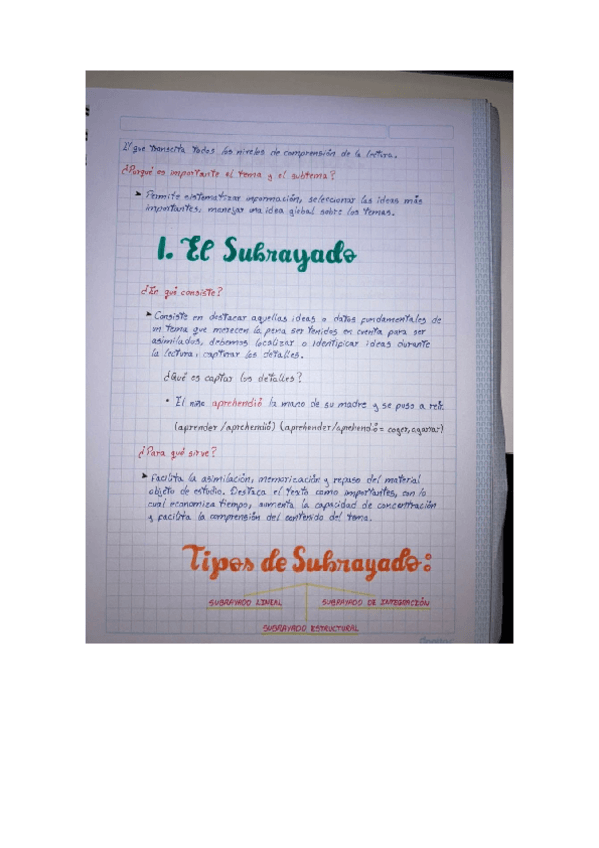 que transcita todos los niveles de comprensión de la lectura.
¿Porqué es importante el tema y el subtema?
➤ Permite sistematizar información, seleccionar las ideas más
importantes, manejar una idea global sobre los temas.
1. El Subrayado
¿En qué consiste?
➤ Consiste en destacar aquellas ideas o datos fundamentales de
un tema que merecen la pena ser tenidos en cuenta para ser
asimilados, debemos localizar o identificar ideas durante
la lectura, captar los detalles.
¿Qué es captar los detalles?
• El niño aprehendió la mano de su madre y se puso a reír.
(aprender/aprehendió) (aprehender/aprehendió = coger, agarrar)
¿Para qué sirve?
➤ Facilita la asimilación, memorización y repaso del material
objeto de estudio. Destaca el texto como importantes, con lo
cual economiza tiempo, aumenta la capacidad de concentración
y facilita la comprensión del contenido del tema.
Tipos de Subrayado:
SUBRAYADO LINEAL
SUBRAYADO DE INTEGRACIÓN
SUBRAYADO ESTRUCTURAL